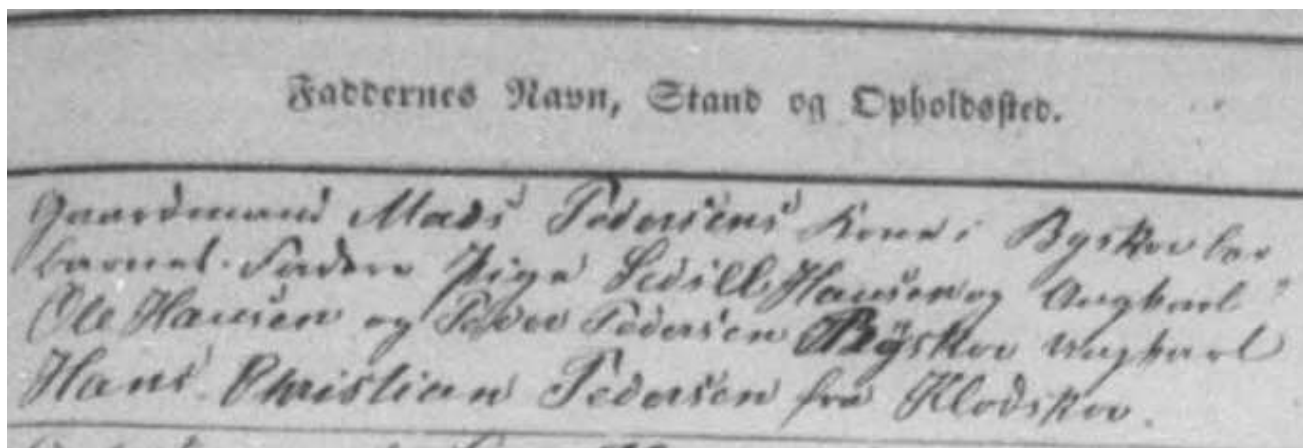 Faddernes Navn, Stand og Opholdssted.
Gaardmand Mads Pedersens Kone i Byskov bar
barnet. Faddere Pige Sidill Hansen og Ungkarl
Ole Hansen og Peder Pedersen Byskov Ungkarl
Hans Christian Pedersen fra Klodskov.